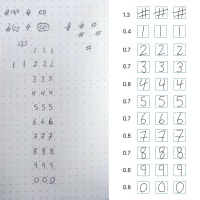 # # #
# # #
#
123
1 1 1
1. 1 2 2 2
3 3 3
4 4 4
5 5 5
6 6 6
7 7 7
8 8 8
9 9 9
0 0 0
1.3 # # #
0.4 1 1 1
0.7 2 2 2
0.7 3 3 3
0.8 4 4 4
0.7 5 5 5
0.7 6 6 6
0.8 7 7 7
0.7 8 8 8
0.6 9 9 9
0.8 0 0 0